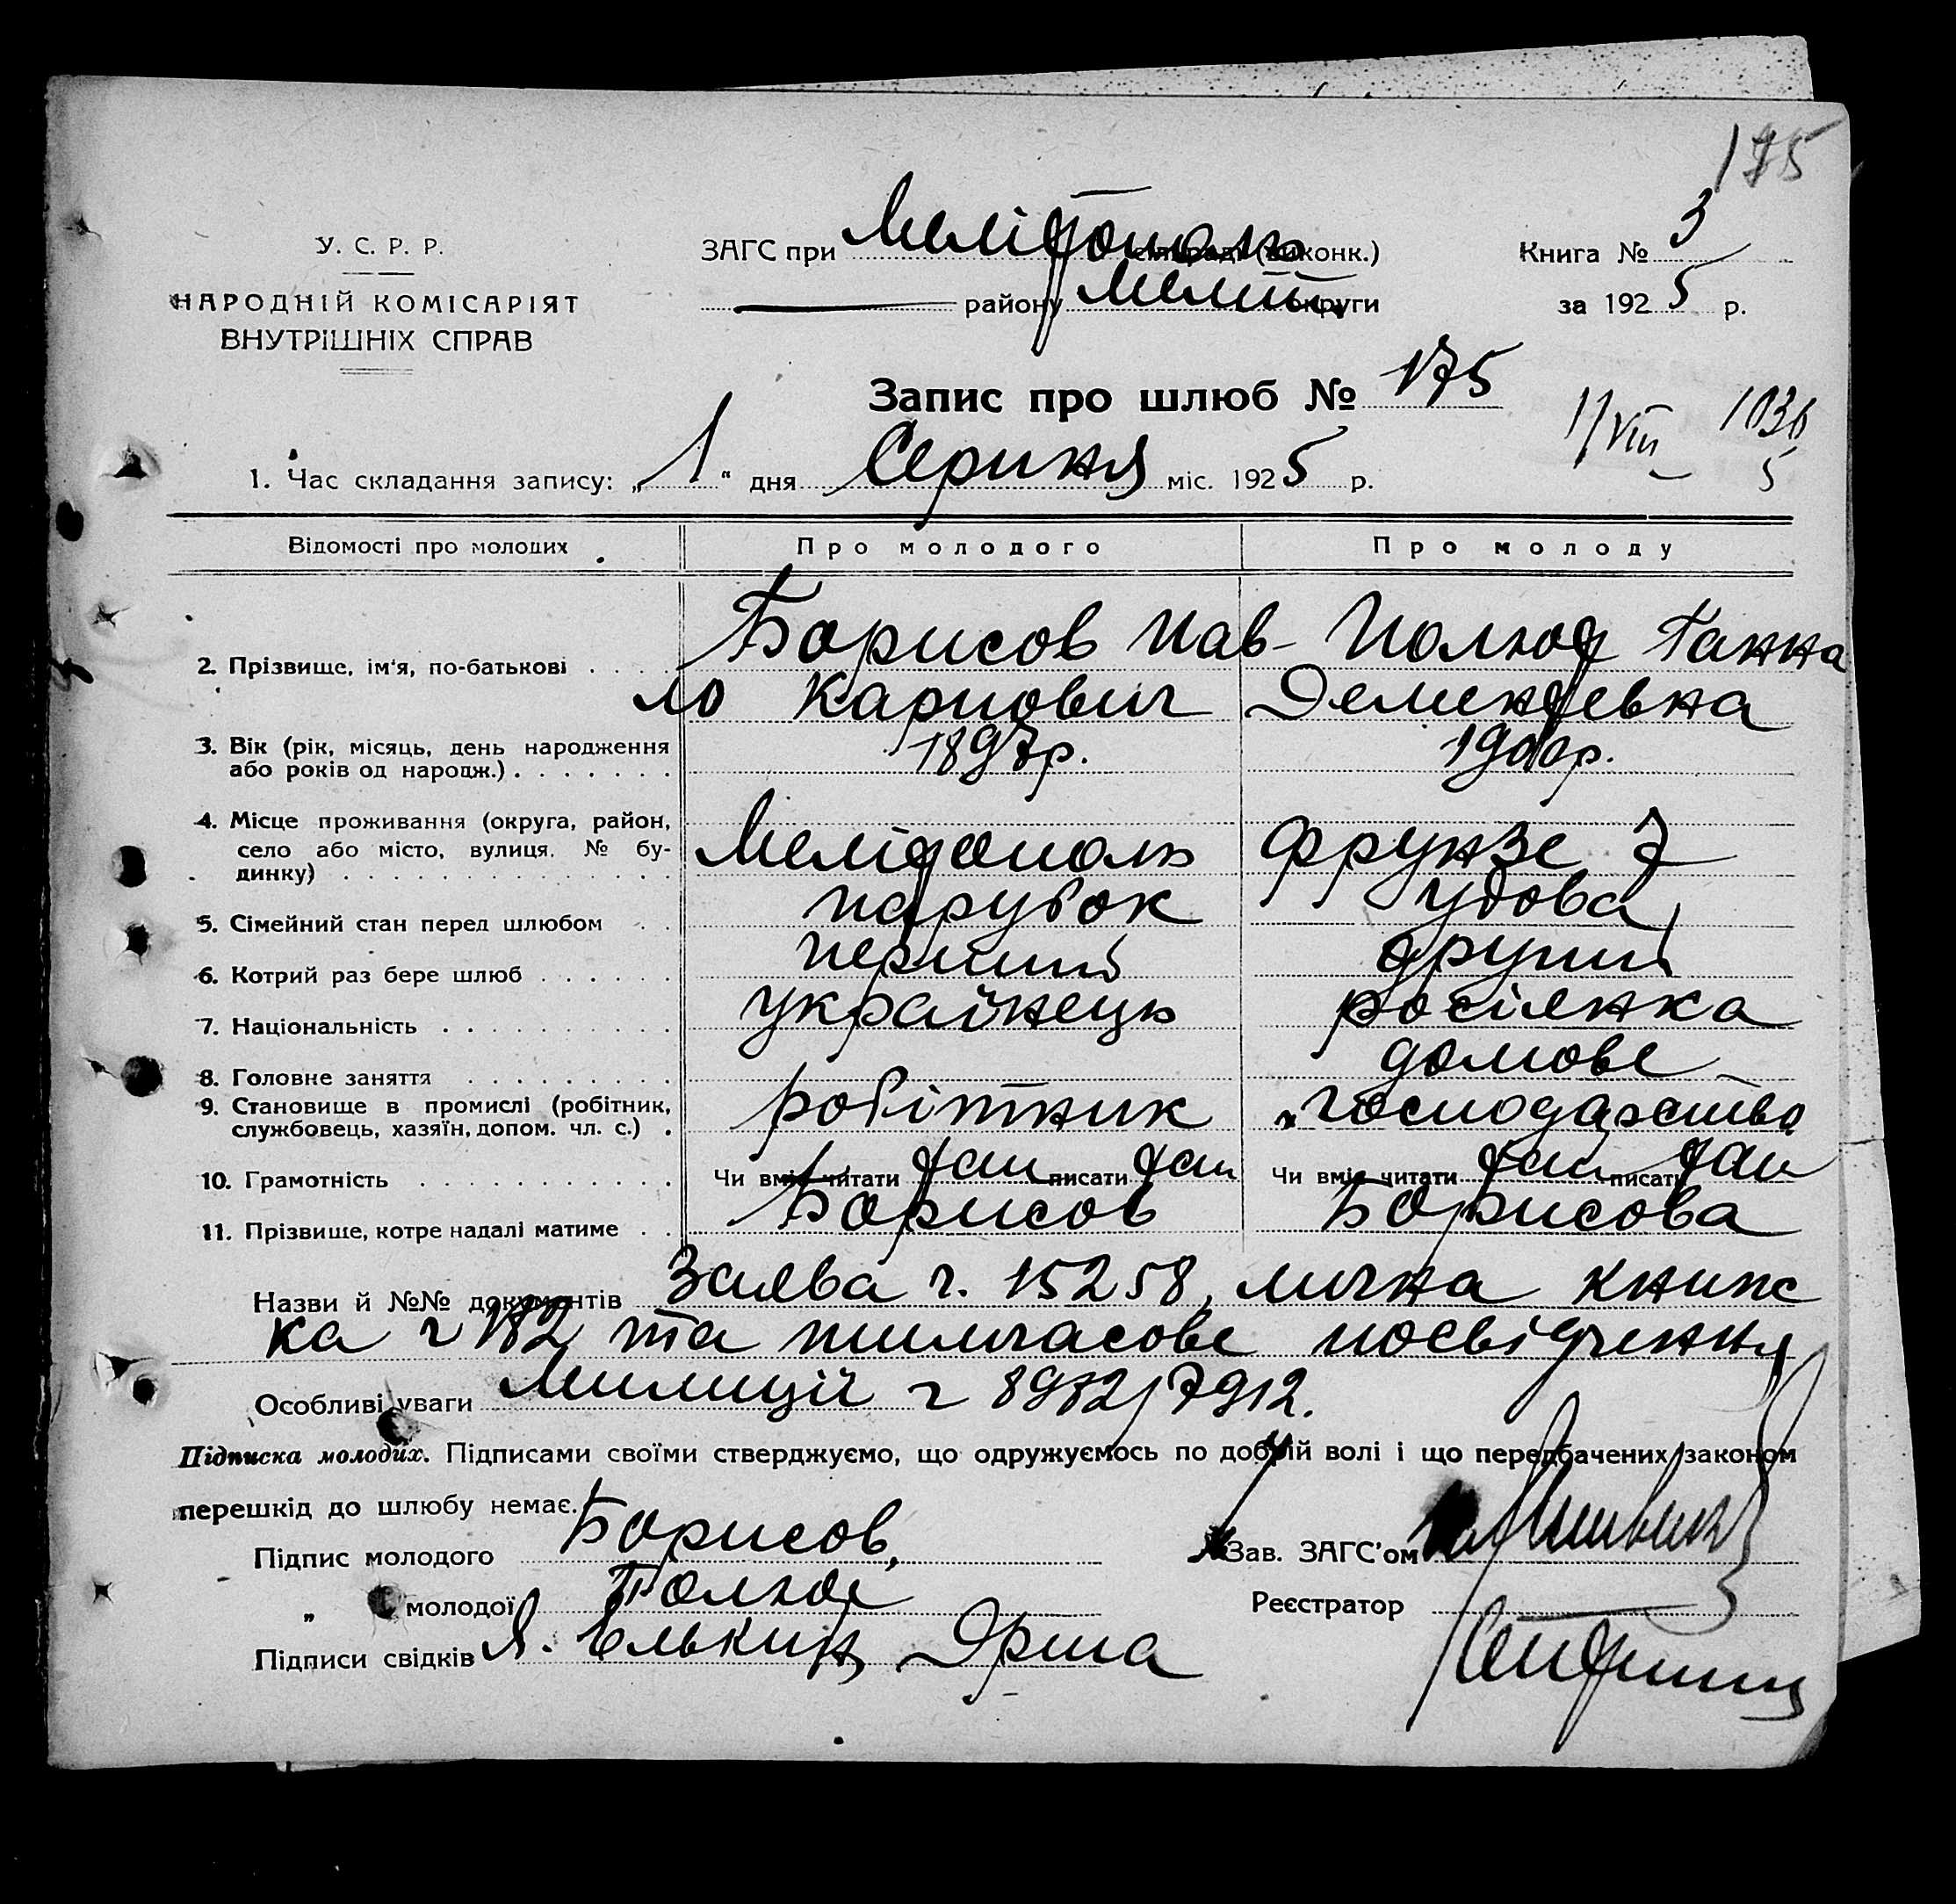 175
У. С. Р. Р.
НАРОДНІЙ КОМІСАРІЯТ
ВНУТРІШНІХ СПРАВ
ЗАГС при Мелітополь (виконк.)
району Меліт. округи
Книга № 3
за 1925 р.
Запис про шлюб № 175
11/VIII 1036
5
1. Час складання запису: „1" дня Серпня міс. 1925 р.
Відомості про молодих
Про молодого
Про молоду
2. Прізвище, ім'я, по-батькові
Борисов Пав-
ло Карпович
Полюд Ганна
Дементьевна
3. Вік (рік, місяць, день народження
або років од народж.)
1897р.
1900р.
4. Місце проживання (округа, район,
село або місто, вулиця. № бу-
динку)
Мелітополь
Фрунзе 7
5. Сімейний стан перед шлюбом
парубок
удова
6. Котрий раз бере шлюб
перший
другий
7. Національність
українець
росіянка
8. Головне заняття
домове
9. Становище в промислі (робітник,
службовець, хазяїн, допом. чл. с.)
робітник
господарство
10. Грамотність
Чи вміє читати так писати так
Чи вміє читати так писати так
11. Прізвище, котре надалі матиме
Борисов
Борисова
Назви й №№ документів Заява ч. 15258, лична книж
ка ч 182 та тимчасове посвідчення
Особливі уваги Милиції ч 8982/7912.
Підписка молодих. Підписами своїми стверджуємо, що одружуємось по добрій волі і що передбачених законом
перешкід до шлюбу немає.
Підпис молодого Борисов,
Зав. ЗАГС'ом
„ молодої Полюд
Реєстратор
Підписи свідків Я. Елькин